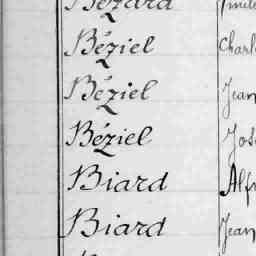 Bézard
Béziel Charl
Béziel Jean
Béziel Jos
Biard Alf
Biard Jean